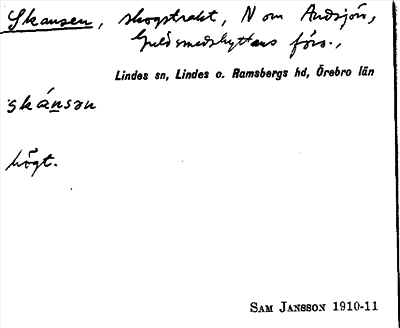 Skansen, skogstrakt, N om Andsjön,
Guldsmedshyttans förs.,
Lindes sn, Lindes o. Ramsbergs hd, Örebro län
skánsən
högt.
SAM JANSSON 1910-11